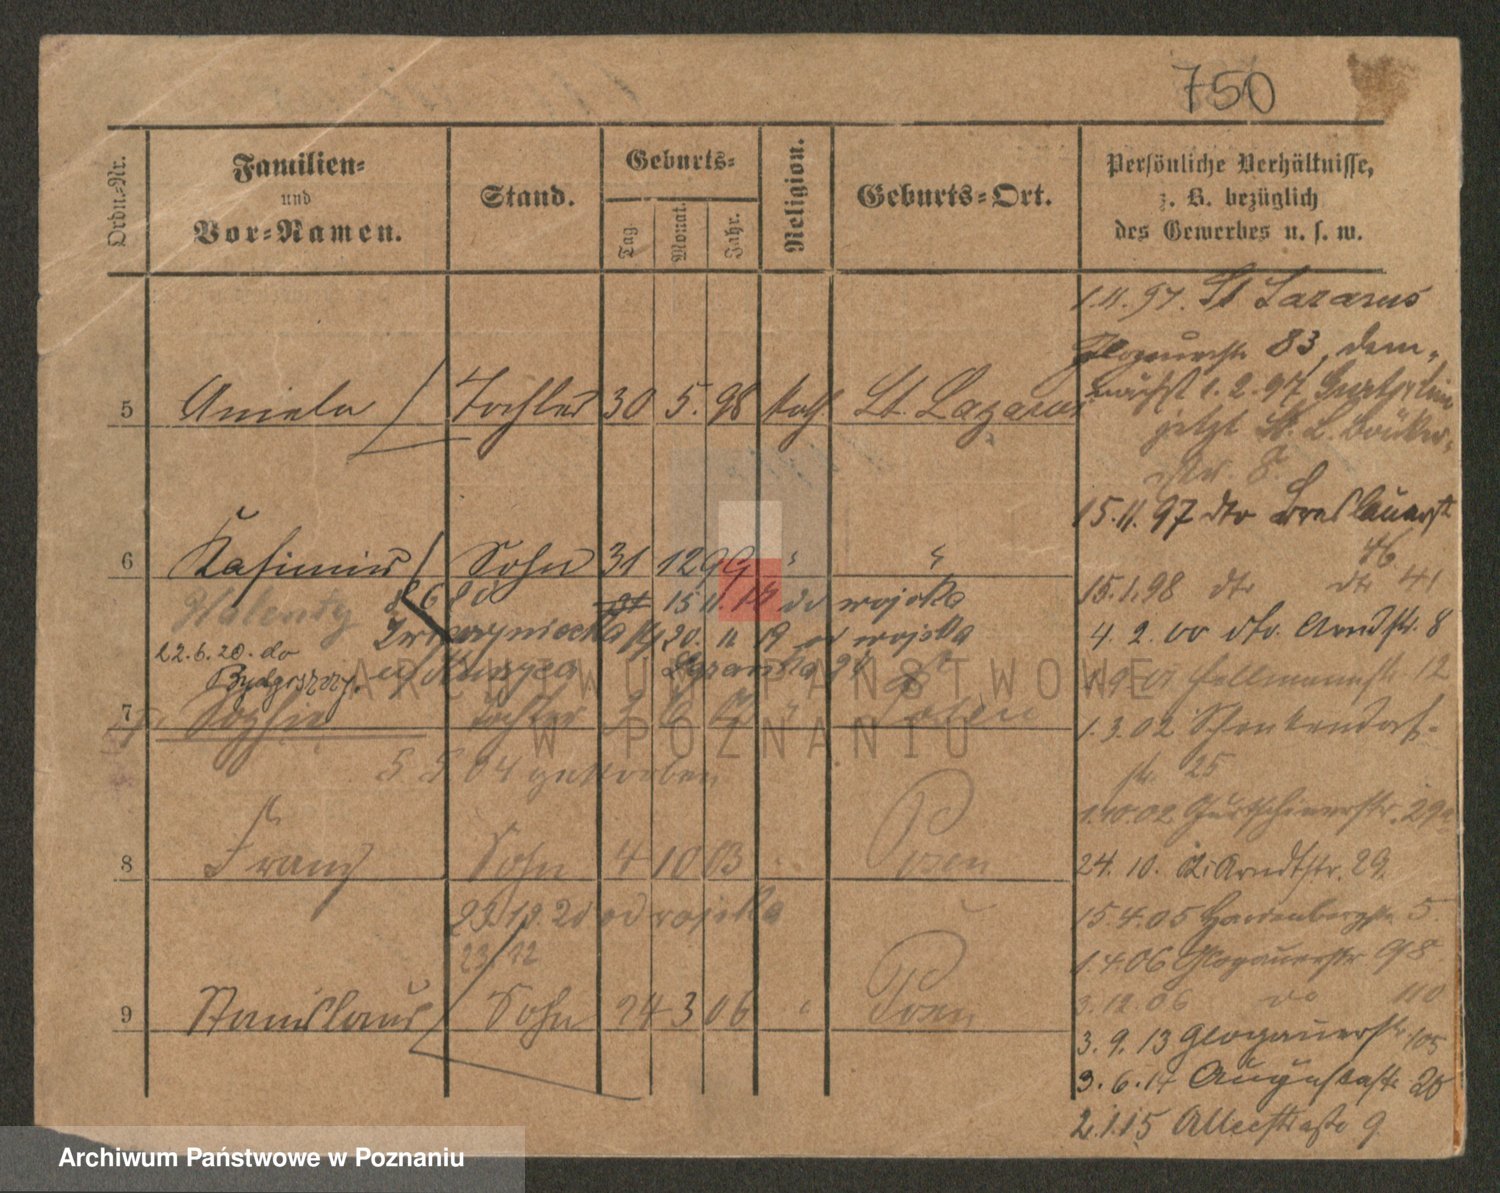 750
Ordn.-Nr.
Familien-
und
Vor-Namen.
Stand.
Geburts-
Tag.
Monat.
Jahr.
Religion.
Geburts-Ort.
Persönliche Verhältnisse,
z. B. bezüglich
des Gewerbes u. s. w.
1.11.97. St Lazarus
Glogauerstr 83, dem-
5 Aniela Tochter 30 5. 98 kath St. Lazarus
nächst 1.2.97
jetzt St. L.
str. 8.
15.11.97 dto Breslauerstr
46
6 Kasimir Sohn 31 12 99 " "
15.1.98 dto dto 41
Walenty 15 11. do wojska
4.2.00 dto. Arndtstr. 8
20. 11 19 od wojska
22.6.20. do
Bydgoszczy.
12
7 Sophie Tochter 2 6 02 " Posen
1.3.02 Schenkendorf-
str. 25
5 5 04 gestorben
1.10.02 Gurtschinerstr. 29a
8 Franz Sohn 4 10 03 " Posen
24. 10. Arndtstr. 29.
29.12.20 od wojska
15.4.05 Hardenbergstr 5.
23/12
1.4.06 Glogauerstr 98
3.12.06 do 110
9 Stanislaus Sohn 24 3 06 " Posen
3. 9. 13 Glogauerstr 105
3. 6. 14 Augustastr 20
2.1.15 Alleestraße 9.
ARCHIWUM PAŃSTWOWE
W POZNANIU
Archiwum Państwowe w Poznaniu